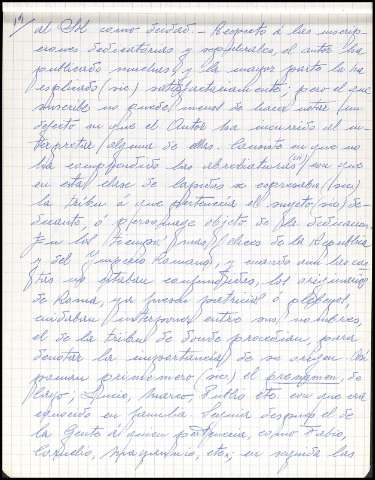 al Sol como deidad. - Respecto á las inscrip-
ciones dedicatorias y sepulcrales, el autor ha
publicado muchas, y la mayor parte la ha
esplicado (sic) satisfactoriamente; pero el que
suscribe no puede menos de hacer notar un
defecto en que el Autor ha incurrido al in-
terpretar alguna de ellas. Consiste en que no
ha comprendido las abreviaturas con que
en esta clase de lápidas se espresaba (sic)
la tribu á que pertenecía el sujeto (sic) de-
dicante, ó personage objeto de la dedicación.
En los tiempos más felices de la República
y del Imperio Romano, y cuando aun las cas-
tas no estaban confundidas, los originarios
de Roma, ya fuesen patricios ó plebeyos,
cuidaban interponer entre sus nombres,
el de la tribu de donde procedían, para
denotar la importancia de su origen. Así
ponían primero (sic) el prenomen, de
Cayo, Lucio, Marco, Publio etc. con que era
conocido en familia. Seguía después el de
la Gente á quien pertenecía, como Fabio,
Cornelio, etc.; en seguida las